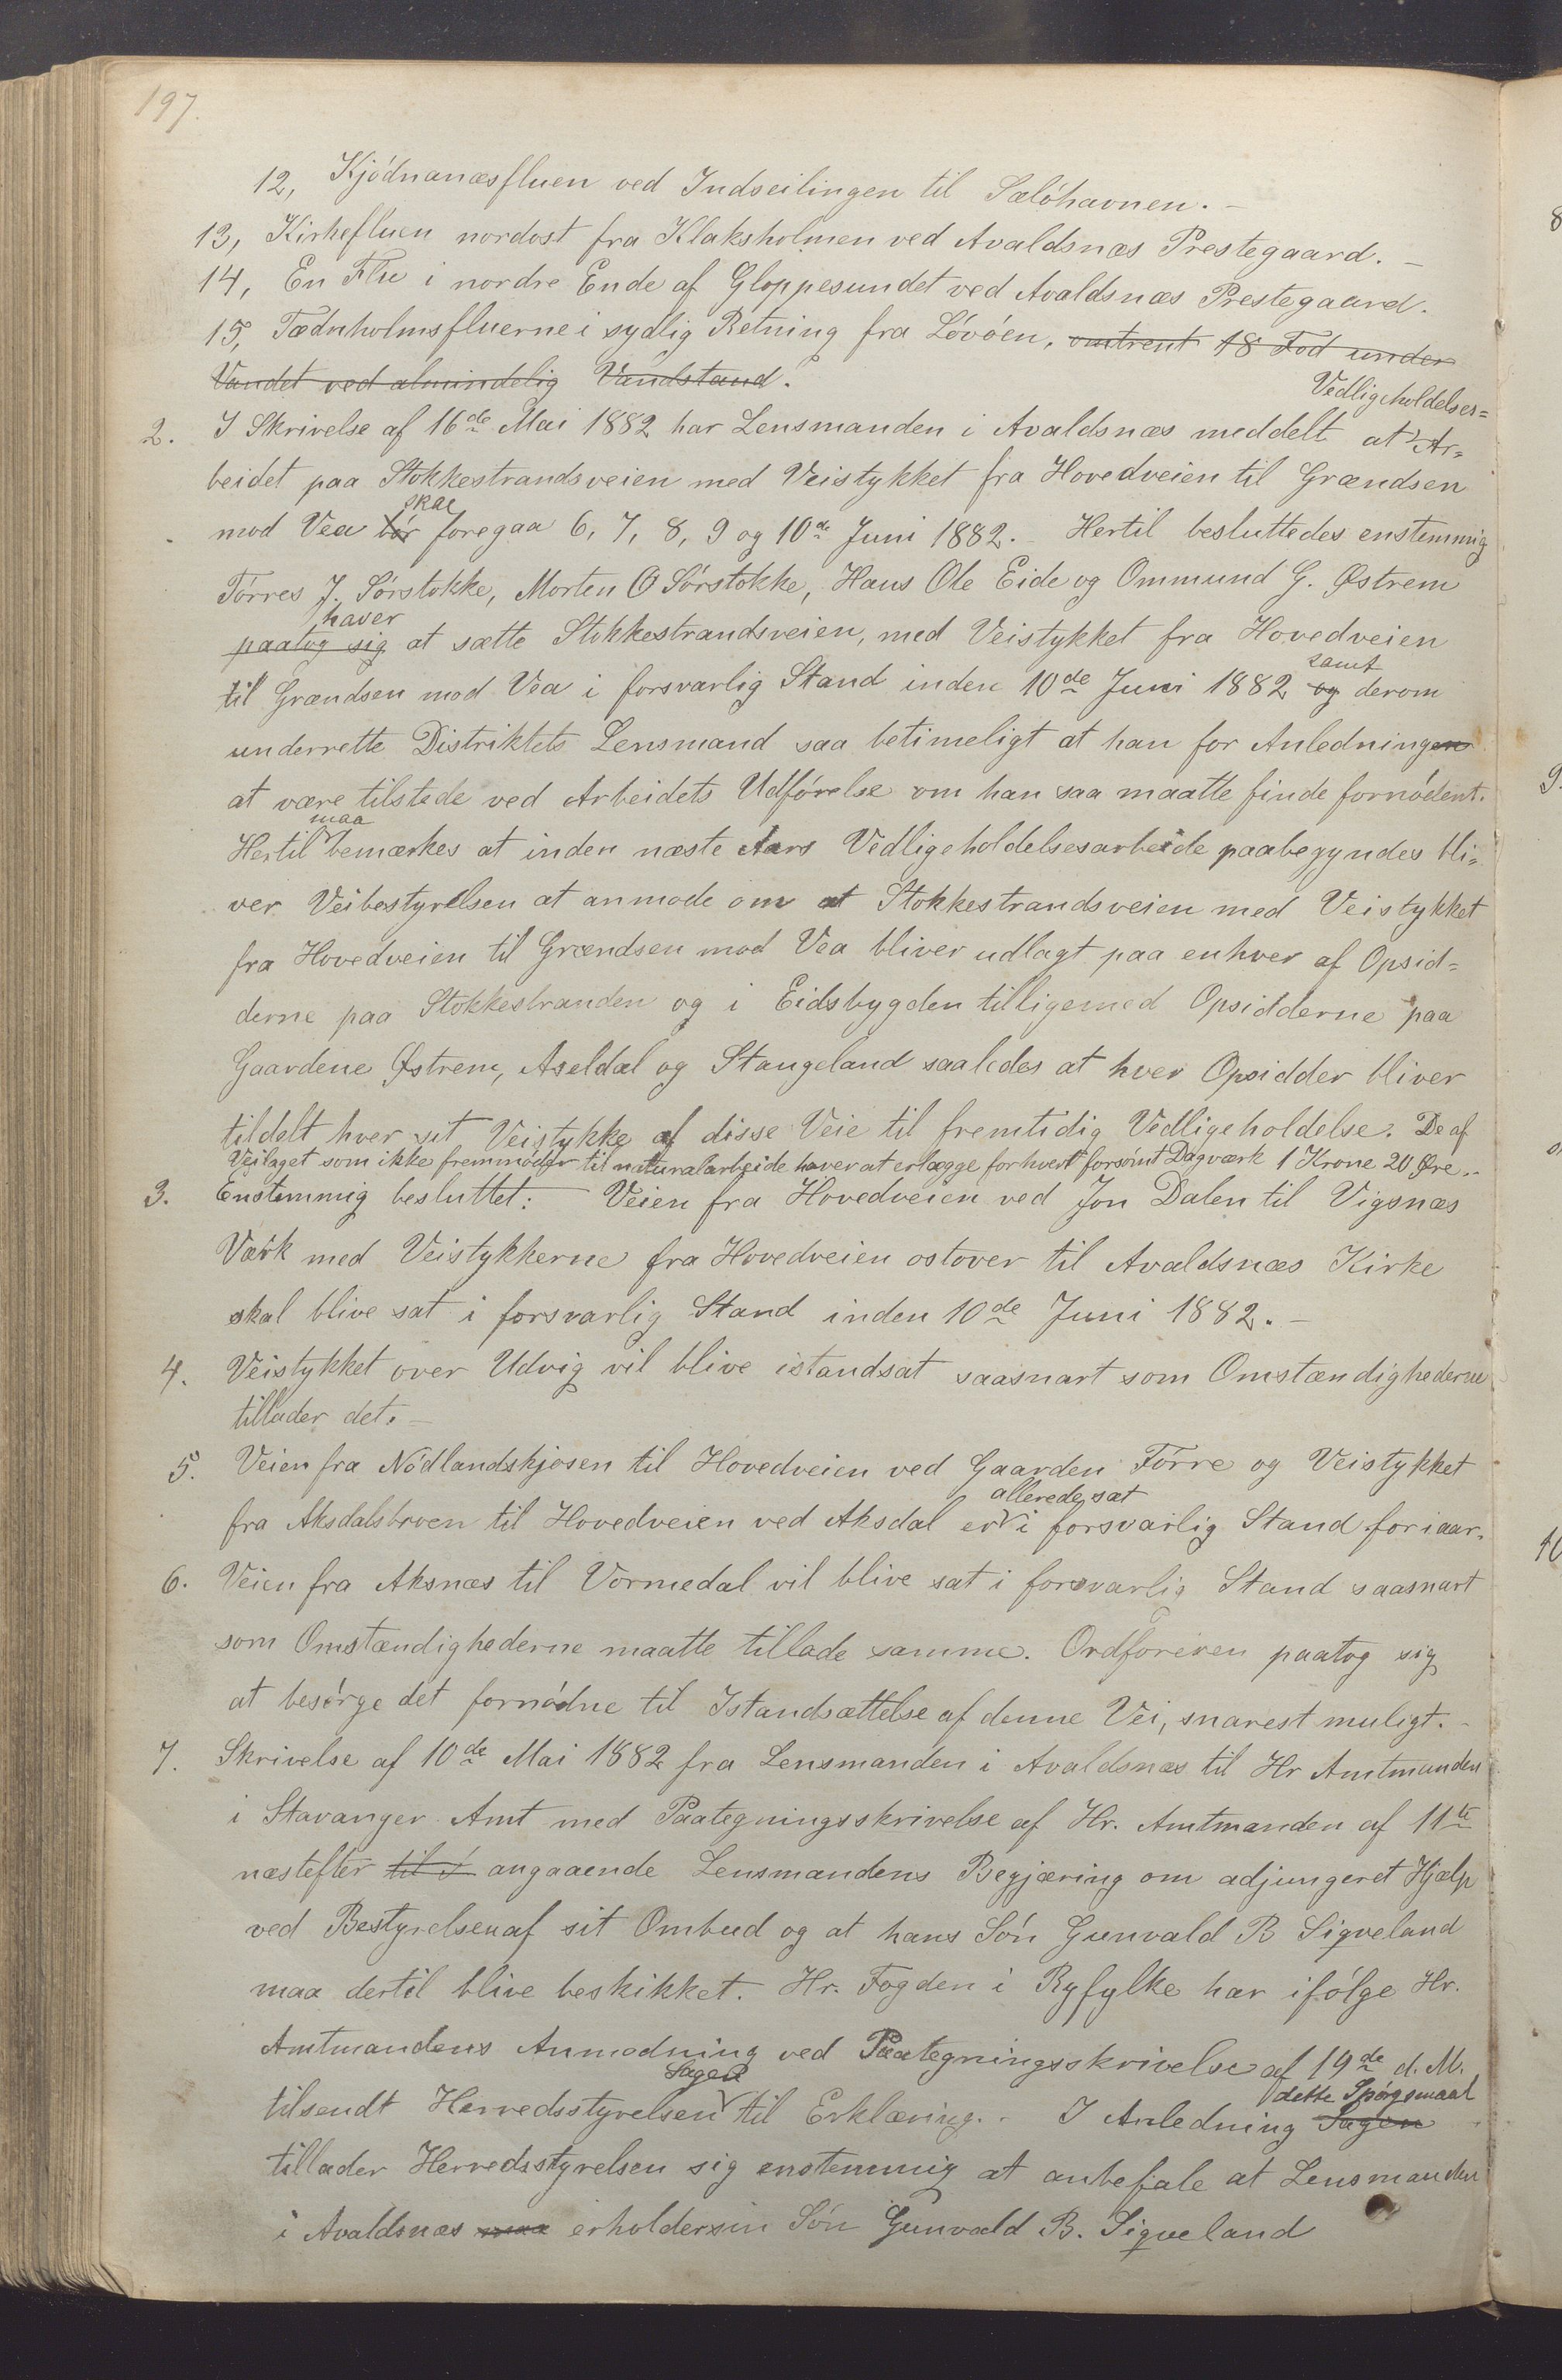 197.
12, Kjódnanæsfluen ved Indseilingen til Sælóhavnen. —
13, Kirkefluen nordost fra Klaksholmen ved Avaldsnæs Prestegaard. —
14, En Flu i nordre Ende af Gloppesundet ved Avaldsnæs Prestegaard.
15, Tædnholmsfluerne i sydlig Retning fra Lóvóen. omtrent 18 Fod under
Vandet ved almindelig Vandstand.
Vedligeholdelses=
2. I Skrivelse af 16de Mai 1882 har Lensmanden i Avaldsnæs meddelt at Ar=
beidet paa Stokkestrandsveien med Veistykket fra Hovedveien til Grændsen
skal
mod Vea bór foregaa 6, 7, 8, 9 og 10de Juni 1882. Hertil besluttedes enstemmig
Tórres J. Sórstokke, Morten O Sórstokke, Hans Ole Eide og Ommund G. Østrem
haver
paatog sig at sætte Stokkestrandsveien, med Veistykket fra Hovedveien
samt
til Grændsen mod Vea i forsvarlig Stand inden 10de Juni 1882 og derom
underrette Distriktets Lensmand saa betimeligt at han for Anledningen
at være tilstede ved Arbeidets Udfórelse om han saa maatte finde fornódent.
maa
Hertil bemærkes at inden næste Aars Vedligeholdelsesarbeide paabegyndes bli=
ver Veibestyrelsen at anmode om at Stokkestrandsveien med Veistykket
fra Hovedveien til Grændsen mod Vea bliver udlagt paa enhver af Opsid=
derne paa Stokkestranden og i Eidsbygden tilligemed Opsidderne paa
Gaardene Østrem, Aseldal og Stangeland saaledes at hver Opsidder bliver
tildelt hver sit Veistykke af disse Veie til fremtidig Vedligeholdelse. De af
Veilaget som ikke fremmóder til naturalarbeide haver at erlægge for hvert forsómt Dagværk 1 Krone 20 Øre. -
3. Enstemmig besluttet: Veien fra Hovedveien ved Jon Dalen til Vigsnæs
Værk med Veistykkerne fra Hovedveien ostover til Avaldsnæs Kirke
skal blive sat i forsvarlig Stand inden 10de Juni 1882. —
4. Veistykket over Udvig vil blive istandsat saasnart som Omstændighederne
tillader det. —
5. Veien fra Nódlandskjosen til Hovedveien ved Gaarden Fórre og Veistykket
allerede sat
fra Aksdalsbroen til Hovedveien ved Aksdal er i forsvarlig Stand for iaar.
6. Veien fra Aksnæs til Vormedal vil blive sat i forsvarlig Stand saasnart
som Omstændighederne maatte tillade samme. Ordfóreren paatog sig
at besórge det fornódne til Istandsættelse af denne Vei, snarest muligt. -
7. Skrivelse af 10de Mai 1882 fra Lensmanden i Avaldsnæs til Hr Amtmanden
i Stavanger Amt med Paategningsskrivelse af Hr. Amtmanden af 11te
næstefter til angaaende Lensmandens Begjæring om adjungeret Hjælp
ved Bestyrelsen af sit Ombud og at hans Són Gunvald B Siqveland
maa dertil blive beskikket. Hr. Fogden i Ryfylke har ifólge Hr.
Amtmandens Anmodning ved Paategningsskrivelse af 19de d. M.
Sagen
dette Spórgsmaal
tilsendt Herredsstyrelsen til Erklæring. - I Anledning Sagen
tillader Herredsstyrelsen sig enstemmig at anbefale at Lensmanden
i Avaldsnæs maa erholder sin Són Gunvald B. Siqveland
8
9.
10